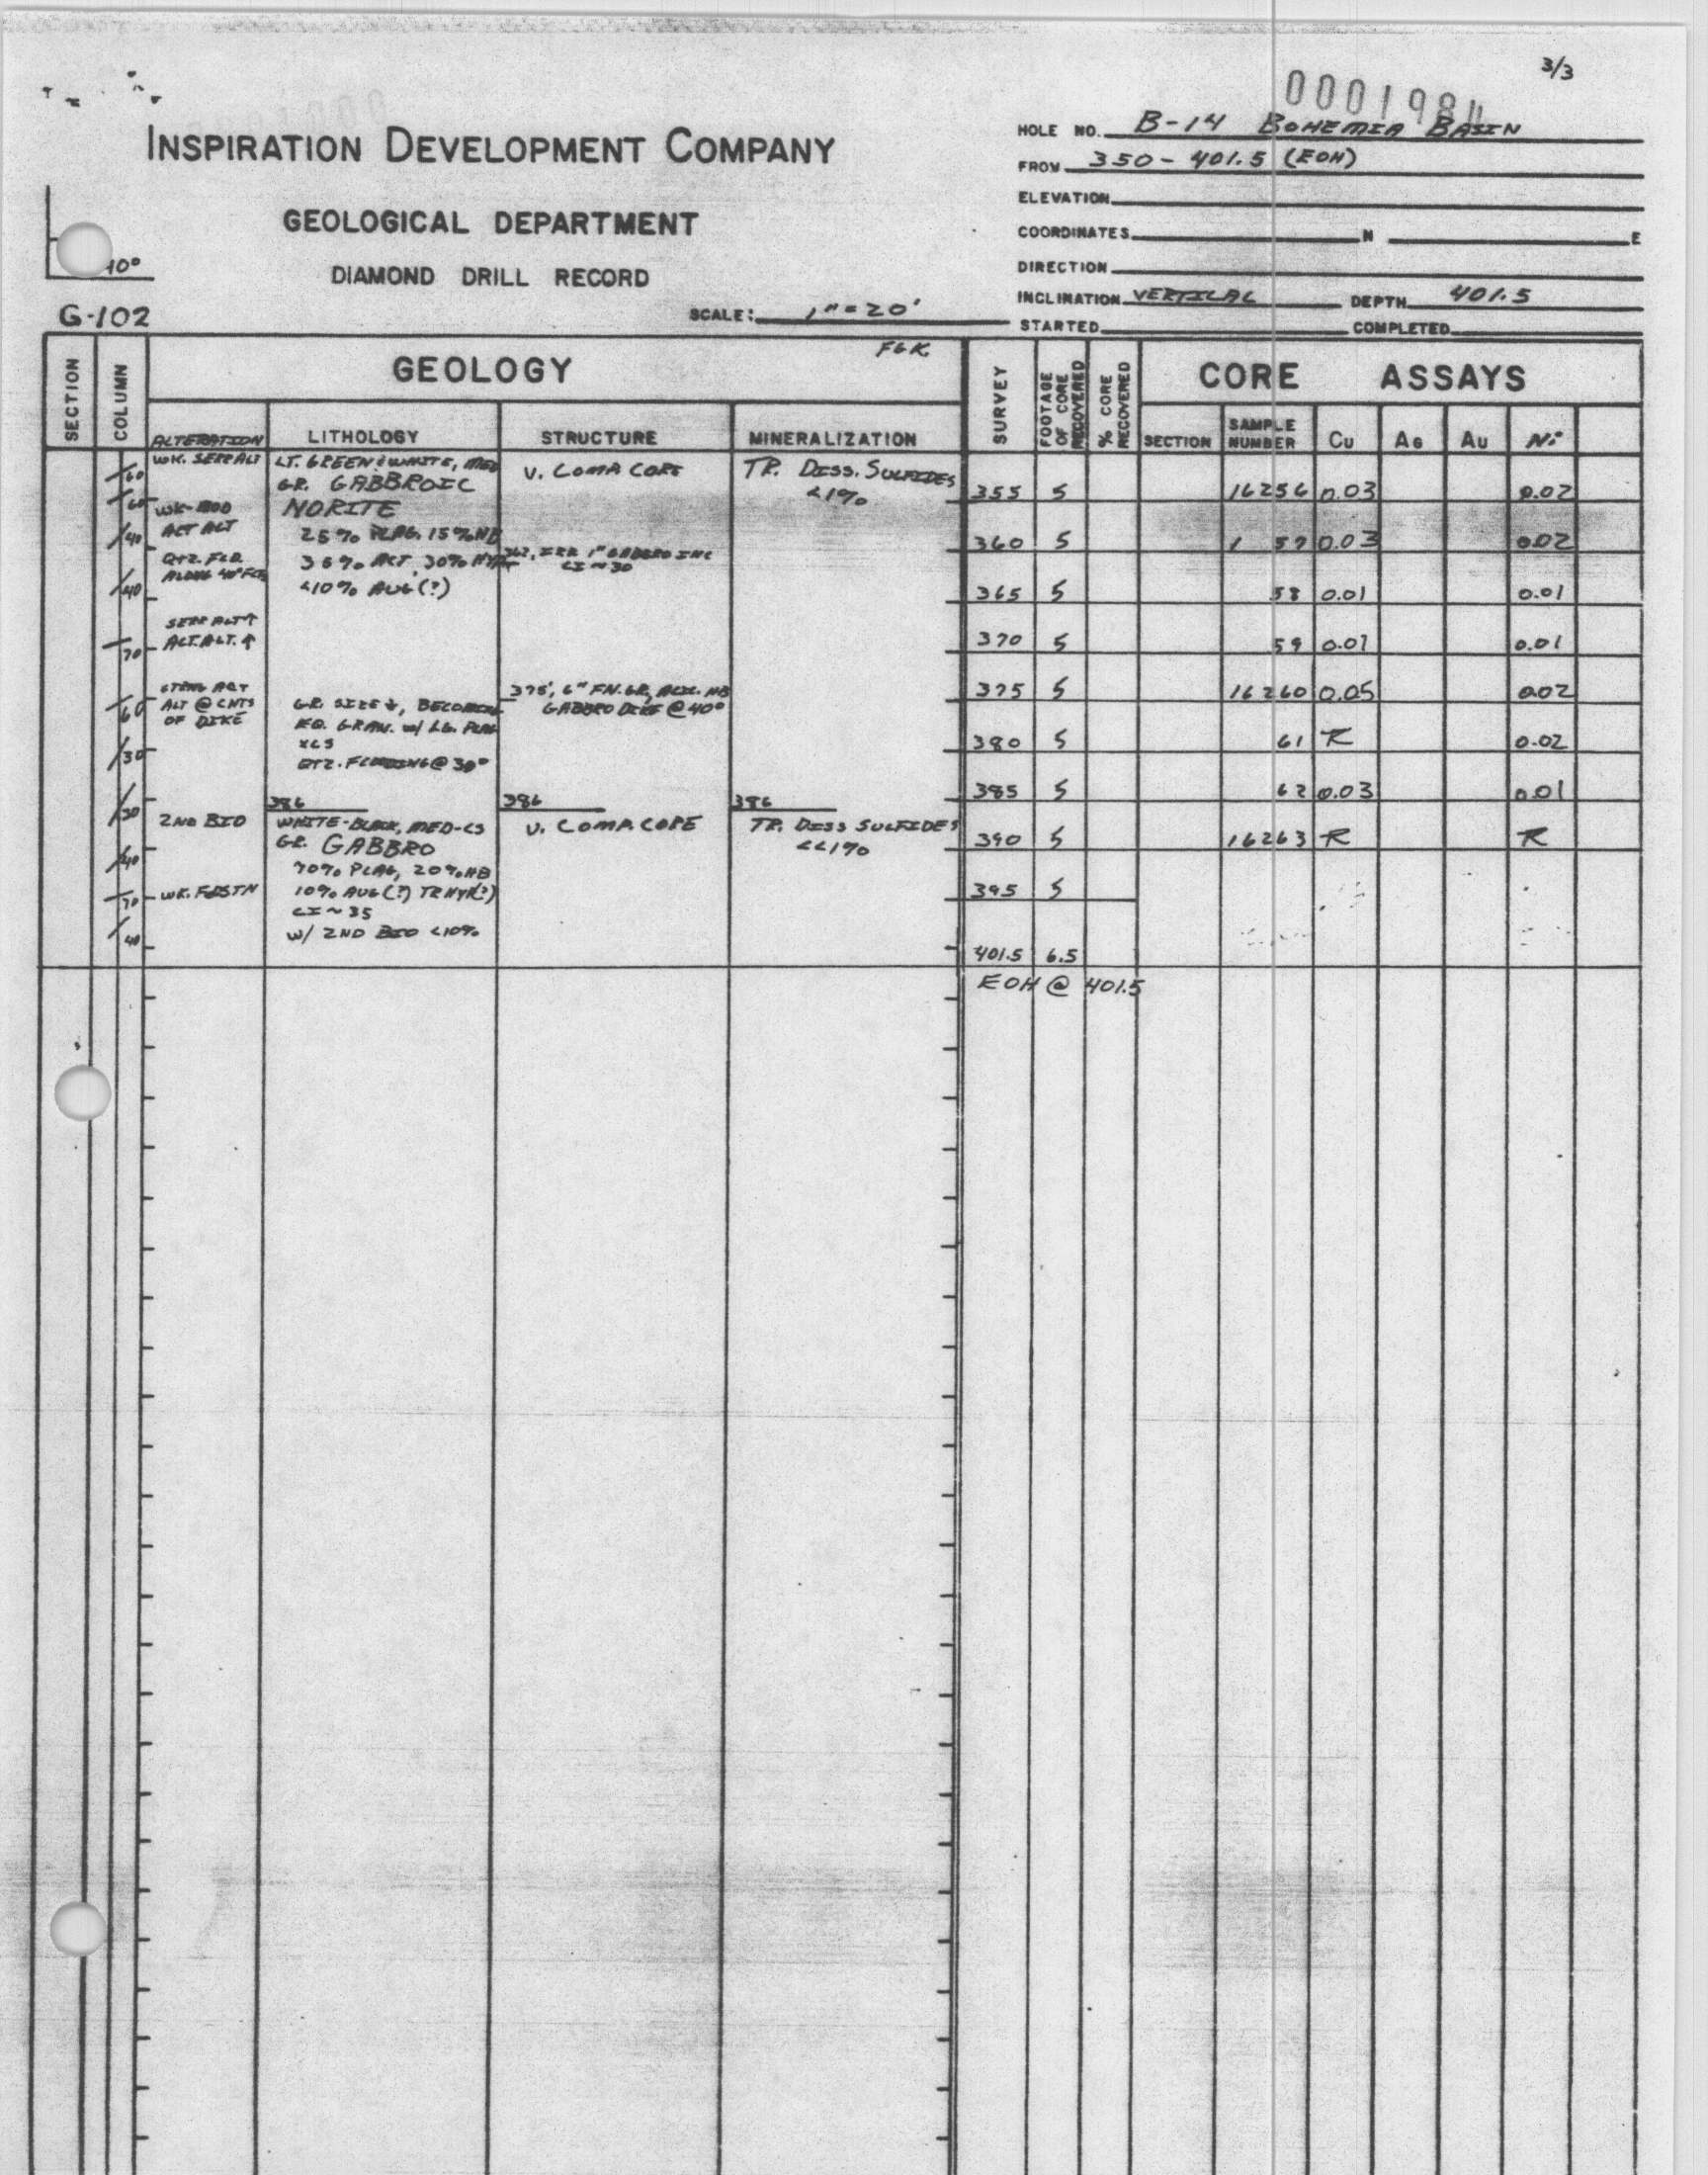 3/3
0001984
INSPIRATION DEVELOPMENT COMPANY
GEOLOGICAL DEPARTMENT
DIAMOND DRILL RECORD
10°
G-102
SCALE: 1"=20'
HOLE NO. B-14 BOHEMIA BASIN
FROM 350-401.5 (EOH)
ELEVATION
COORDINATES N E
DIRECTION
INCLINATION VERTICAL DEPTH 401.5
STARTED COMPLETED
SECTION
COLUMN
GEOLOGY
FGK.
ALTERATION LITHOLOGY STRUCTURE MINERALIZATION
SURVEY
FOOTAGE OF CORE RECOVERED
% CORE RECOVERED
CORE ASSAYS
SECTION SAMPLE NUMBER Cu AG AU Ni
60
60
40
40
70
60
30
30
40
70
40
WK. SERP ALT
WK-MOD
ACT ALT
QTZ. FLD.
ALONG 40°
SERP ALT↑
ACT. ALT. ↑
STRNG ACT
ALT @ CNTS
OF DIKE
2ND BIO
WK. FDSTN
LT. GREEN & WHITE, MED
GR. GABBROIC
NORITE
25% PLAG, 15% HB
30% HYP
<10% AUG(?)
GR. SIZE ↓, BECOMING
EQ. GRAN. W/ LG. PLAG
XLS
QTZ. FLOODING @ 30°
386
WHITE-BLACK, MED-CS
GR. GABBRO
70% PLAG, 20% HB
10% AUG(?) TR HYP(?)
CI ~ 35
W/ 2ND BIO <10%
V. COMP. CORE
362, IRR 1" GABBRO INC
CI ~ 30
375', 6" FN. GR, HB
GABBRO DIKE @ 40°
386
V. COMP. CORE
TR. DISS. SULFIDES
<1%
386
TR. DISS SULFIDES
<<1%
355 5 16256 0.03 0.02
360 5 1 57 0.03 0.02
365 5 58 0.01 0.01
370 5 59 0.01 0.01
375 5 16260 0.05 0.02
380 5 61 TR 0.02
385 5 62 0.03 0.01
390 5 16263 TR TR
395 5
401.5 6.5
EOH @ 401.5